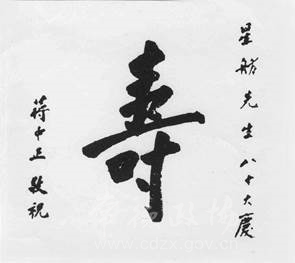 星舫先生八十大慶
壽
蔣中正敬祝
www.cdzx.gov.cn